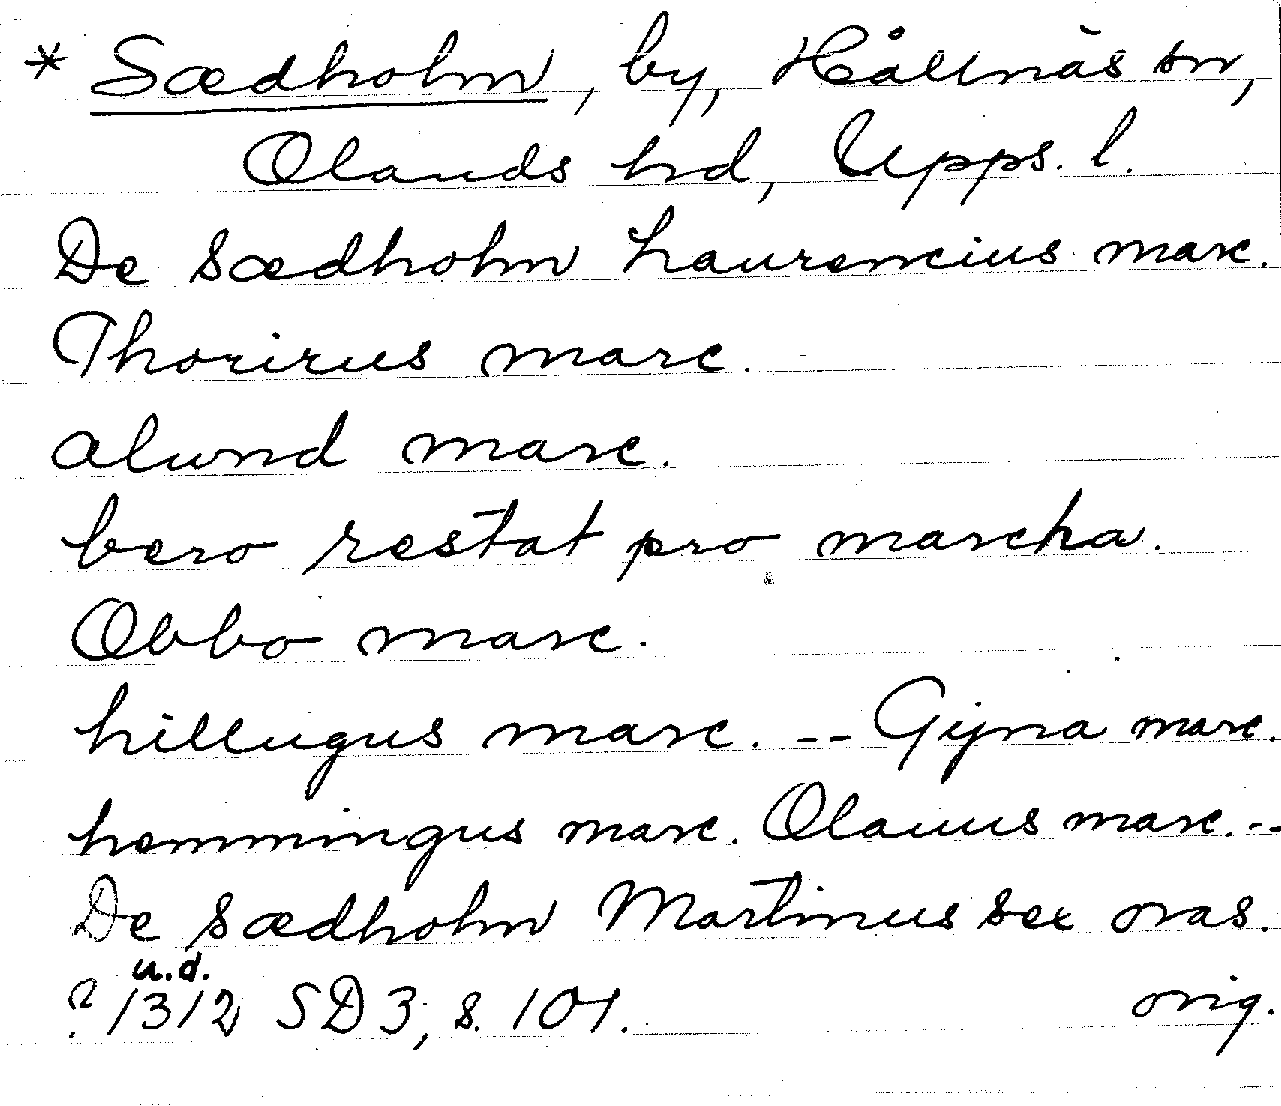 * Sædholm, by, Hållnäs sn,
Olands hd, Upps. l.
De sædholm haurencius marc.
Thorirus marc.
alund marc.
bero restat pro marcha.
Obbo marc.
hillugus marc. -- Gijna marc.
hemmingus marc. Olauus marc. --
De sædholm Martinus sex oras.
u.d.
? 1312 SD 3, s. 101. orig.